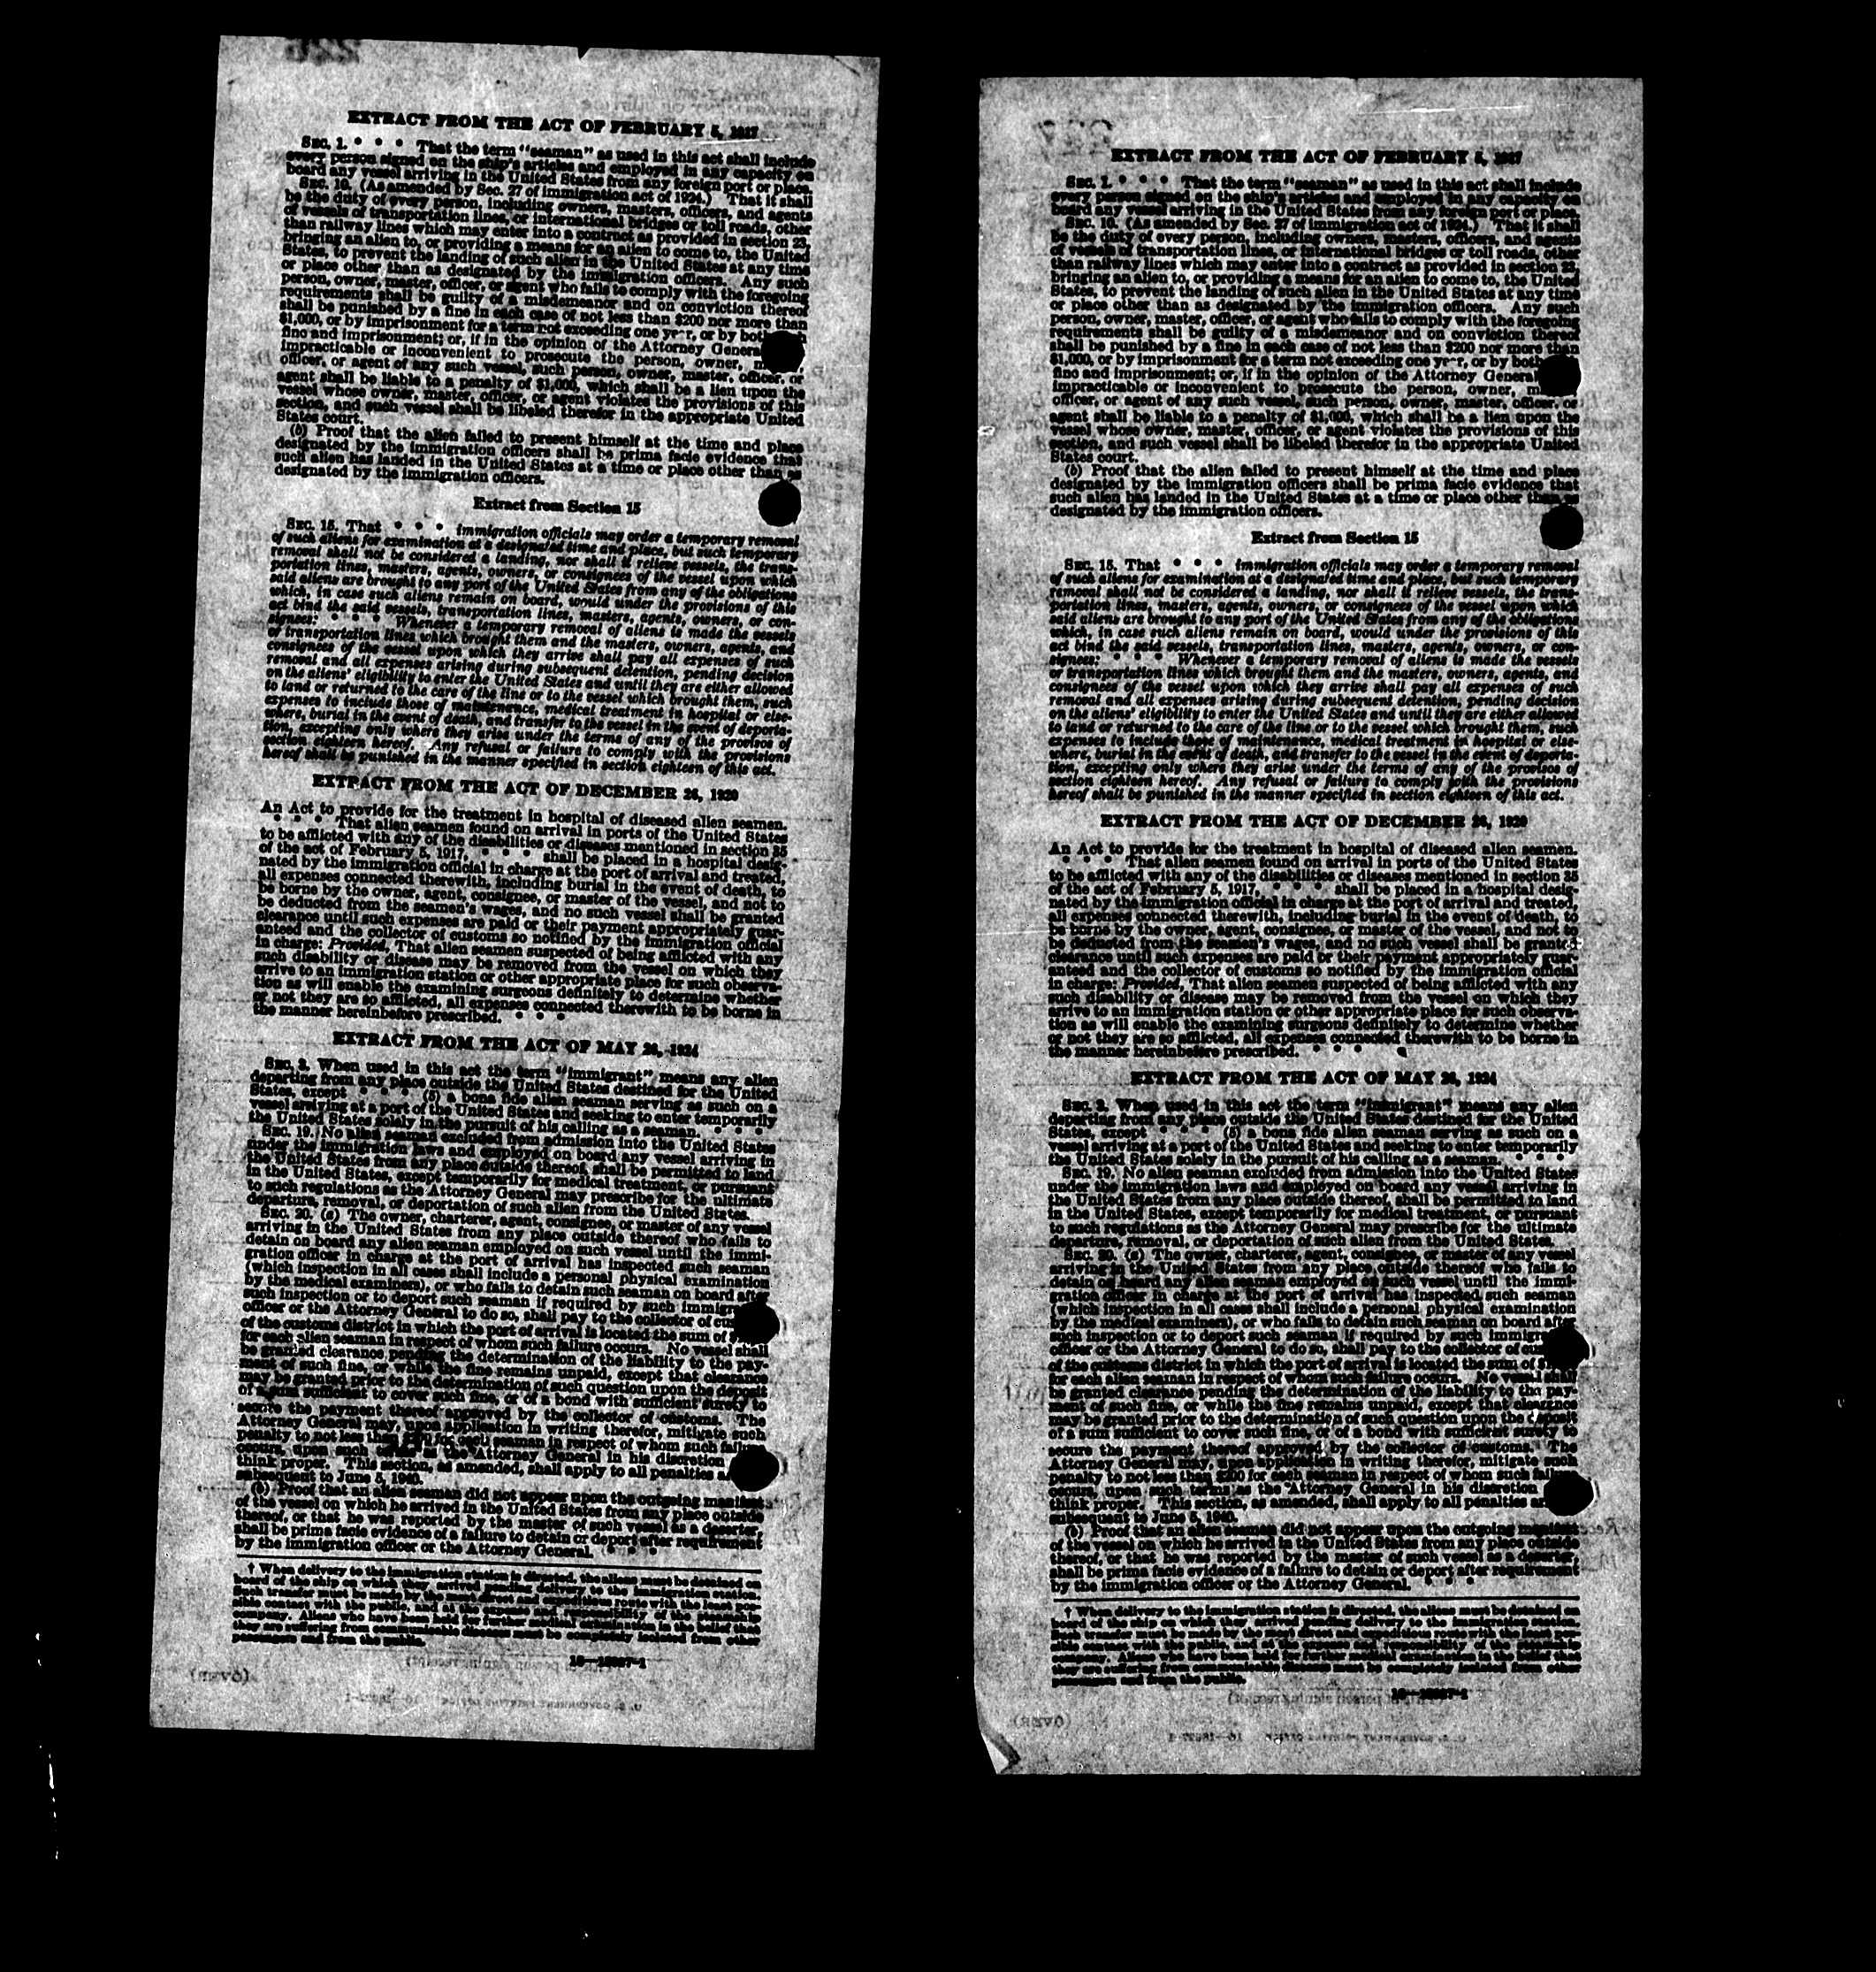 EXTRACT FROM THE ACT OF FEBRUARY 5, 1917
SEC. 1. * * * That the term "seaman" as used in this act shall include
every person signed on the ship's articles and employed in any capacity on
board any vessel arriving in the United States from any foreign port or place.
SEC. 10. (As amended by Sec. 27 of immigration act of 1924.) That it shall
be the duty of every person, including owners, masters, officers, and agents
of vessels of transportation lines, or international bridges or toll roads, other
than railway lines which may enter into a contract as provided in section 23,
bringing an alien to, or providing a means for an alien to come to, the United
States, to prevent the landing of such alien in the United States at any time
or place other than as designated by the immigration officers. Any such
person, owner, master, officer, or agent who fails to comply with the foregoing
requirements shall be guilty of a misdemeanor and on conviction thereof
shall be punished by a fine in each case of not less than $200 nor more than
$1,000, or by imprisonment for a term not exceeding one year, or by both
fine and imprisonment; or, if in the opinion of the Attorney General
impracticable or inconvenient to prosecute the person, owner, m
officer, or agent of any such vessel, such person, owner, master, officer, or
agent shall be liable to a penalty of $1,000, which shall be a lien upon the
vessel whose owner, master, officer, or agent violates the provisions of this
section, and such vessel shall be libeled therefor in the appropriate United
States court.
(b) Proof that the alien failed to present himself at the time and place
designated by the immigration officers shall be prima facie evidence that
such alien has landed in the United States at a time or place other than as
designated by the immigration officers.
Extract from Section 15
SEC. 15. That * * * immigration officials may order a temporary removal
of such aliens for examination at a designated time and place, but such temporary
removal shall not be considered a landing, nor shall it relieve vessels, the trans-
portation lines, masters, agents, owners, or consignees of the vessel upon which
said aliens are brought to any port of the United States from any of the obligations
which, in case such aliens remain on board, would under the provisions of this
act bind the said vessels, transportation lines, masters, agents, owners, or con-
signees: * * * Whenever a temporary removal of aliens is made the vessels
or transportation lines which brought them and the masters, owners, agents, and
consignees of the vessel upon which they arrive shall pay all expenses of such
removal and all expenses arising during subsequent detention, pending decision
on the aliens' eligibility to enter the United States and until they are either allowed
to land or returned to the care of the line or to the vessel which brought them, such
expenses to include those of maintenance, medical treatment in hospital or else-
where, burial in the event of death, and transfer to the vessel in the event of deporta-
tion, excepting only where they arise under the terms of any of the provisos of
section eighteen hereof. Any refusal or failure to comply with the provisions
hereof shall be punished in the manner specified in section eighteen of this act.
EXTRACT FROM THE ACT OF DECEMBER 26, 1920
An Act to provide for the treatment in hospital of diseased alien seamen.
* * * That alien seamen found on arrival in ports of the United States
to be afflicted with any of the disabilities or diseases mentioned in section 35
of the act of February 5, 1917, * * * shall be placed in a hospital desig-
nated by the immigration official in charge at the port of arrival and treated,
all expenses connected therewith, including burial in the event of death, to
be borne by the owner, agent, consignee, or master of the vessel, and not to
be deducted from the seamen's wages, and no such vessel shall be granted
clearance until such expenses are paid or their payment appropriately guar-
anteed and the collector of customs so notified by the immigration official
in charge: Provided, That alien seamen suspected of being afflicted with any
such disability or disease may be removed from the vessel on which they
arrive to an immigration station or other appropriate place for such observa-
tion as will enable the examining surgeons definitely to determine whether
or not they are so afflicted, all expenses connected therewith to be borne in
the manner hereinbefore prescribed. * * *
EXTRACT FROM THE ACT OF MAY 26, 1924
SEC. 3. When used in this act the term "immigrant" means any alien
departing from any place outside the United States destined for the United
States, except * * * (5) a bona fide alien seaman serving as such on a
vessel arriving at a port of the United States and seeking to enter temporarily
the United States solely in the pursuit of his calling as a seaman. * * *
SEC. 19. No alien seaman excluded from admission into the United States
under the immigration laws and employed on board any vessel arriving in
the United States from any place outside thereof, shall be permitted to land
in the United States, except temporarily for medical treatment, or pursuant
to such regulations as the Attorney General may prescribe for the ultimate
departure, removal, or deportation of such alien from the United States.
SEC. 20. (a) The owner, charterer, agent, consignee, or master of any vessel
arriving in the United States from any place outside thereof who fails to
detain on board any alien seaman employed on such vessel until the immi-
gration officer in charge at the port of arrival has inspected such seaman
(which inspection in all cases shall include a personal physical examination
by the medical examiners), or who fails to detain such seaman on board after
such inspection or to deport such seaman if required by such immigra
officer or the Attorney General to do so, shall pay to the collector of cus
of the customs district in which the port of arrival is located the sum of $
for each alien seaman in respect of whom such failure occurs. No vessel shall
be granted clearance pending the determination of the liability to the pay-
ment of such fine, or while the fine remains unpaid, except that clearance
may be granted prior to the determination of such question upon the deposit
of a sum sufficient to cover such fine, or of a bond with sufficient surety to
secure the payment thereof approved by the collector of customs. The
Attorney General may, upon application in writing therefor, mitigate such
penalty to not less than $200 for each seaman in respect of whom such failure
occurs, upon such terms as the Attorney General in his discretion
think proper. This section, as amended, shall apply to all penalties a
subsequent to June 5, 1940.
(b) Proof that an alien seaman did not appear upon the outgoing manifest
of the vessel on which he arrived in the United States from any place outside
thereof, or that he was reported by the master of such vessel as a deserter,
shall be prima facie evidence of a failure to detain or deport after requirement
by the immigration officer or the Attorney General. * * *
† When delivery to the immigration station is directed, the aliens must be detained on
board of the ship on which they arrived pending delivery to the immigration station.
Such transfer must be made by the most direct and expeditious route with the least pos-
sible contact with the public, and at the expense and responsibility of the steamship
company. Aliens who have been held for further medical examination in the belief that
they are suffering from communicable diseases must be completely isolated from other
passengers and from the public.
(OVER)
U. S. GOVERNMENT PRINTING OFFICE
EXTRACT FROM THE ACT OF FEBRUARY 5, 1917
SEC. 1. * * * That the term "seaman" as used in this act shall include
every person signed on the ship's articles and employed in any capacity on
board any vessel arriving in the United States from any foreign port or place.
SEC. 10. (As amended by Sec. 27 of immigration act of 1924.) That it shall
be the duty of every person, including owners, masters, officers, and agents
of vessels of transportation lines, or international bridges or toll roads, other
than railway lines which may enter into a contract as provided in section 23,
bringing an alien to, or providing a means for an alien to come to, the United
States, to prevent the landing of such alien in the United States at any time
or place other than as designated by the immigration officers. Any such
person, owner, master, officer, or agent who fails to comply with the foregoing
requirements shall be guilty of a misdemeanor and on conviction thereof
shall be punished by a fine in each case of not less than $200 nor more than
$1,000, or by imprisonment for a term not exceeding one year, or by both
fine and imprisonment; or, if in the opinion of the Attorney General
impracticable or inconvenient to prosecute the person, owner, m
officer, or agent of any such vessel, such person, owner, master, officer, or
agent shall be liable to a penalty of $1,000, which shall be a lien upon the
vessel whose owner, master, officer, or agent violates the provisions of this
section, and such vessel shall be libeled therefor in the appropriate United
States court.
(b) Proof that the alien failed to present himself at the time and place
designated by the immigration officers shall be prima facie evidence that
such alien has landed in the United States at a time or place other than as
designated by the immigration officers.
Extract from Section 15
SEC. 15. That * * * immigration officials may order a temporary removal
of such aliens for examination at a designated time and place, but such temporary
removal shall not be considered a landing, nor shall it relieve vessels, the trans-
portation lines, masters, agents, owners, or consignees of the vessel upon which
said aliens are brought to any port of the United States from any of the obligations
which, in case such aliens remain on board, would under the provisions of this
act bind the said vessels, transportation lines, masters, agents, owners, or con-
signees: * * * Whenever a temporary removal of aliens is made the vessels
or transportation lines which brought them and the masters, owners, agents, and
consignees of the vessel upon which they arrive shall pay all expenses of such
removal and all expenses arising during subsequent detention, pending decision
on the aliens' eligibility to enter the United States and until they are either allowed
to land or returned to the care of the line or to the vessel which brought them, such
expenses to include those of maintenance, medical treatment in hospital or else-
where, burial in the event of death, and transfer to the vessel in the event of deporta-
tion, excepting only where they arise under the terms of any of the provisos of
section eighteen hereof. Any refusal or failure to comply with the provisions
hereof shall be punished in the manner specified in section eighteen of this act.
EXTRACT FROM THE ACT OF DECEMBER 26, 1920
An Act to provide for the treatment in hospital of diseased alien seamen.
* * * That alien seamen found on arrival in ports of the United States
to be afflicted with any of the disabilities or diseases mentioned in section 35
of the act of February 5, 1917, * * * shall be placed in a hospital desig-
nated by the immigration official in charge at the port of arrival and treated,
all expenses connected therewith, including burial in the event of death, to
be borne by the owner, agent, consignee, or master of the vessel, and not to
be deducted from the seamen's wages, and no such vessel shall be granted
clearance until such expenses are paid or their payment appropriately guar-
anteed and the collector of customs so notified by the immigration official
in charge: Provided, That alien seamen suspected of being afflicted with any
such disability or disease may be removed from the vessel on which they
arrive to an immigration station or other appropriate place for such observa-
tion as will enable the examining surgeons definitely to determine whether
or not they are so afflicted, all expenses connected therewith to be borne in
the manner hereinbefore prescribed. * * *
EXTRACT FROM THE ACT OF MAY 26, 1924
SEC. 3. When used in this act the term "immigrant" means any alien
departing from any place outside the United States destined for the United
States, except * * * (5) a bona fide alien seaman serving as such on a
vessel arriving at a port of the United States and seeking to enter temporarily
the United States solely in the pursuit of his calling as a seaman. * * *
SEC. 19. No alien seaman excluded from admission into the United States
under the immigration laws and employed on board any vessel arriving in
the United States from any place outside thereof, shall be permitted to land
in the United States, except temporarily for medical treatment, or pursuant
to such regulations as the Attorney General may prescribe for the ultimate
departure, removal, or deportation of such alien from the United States.
SEC. 20. (a) The owner, charterer, agent, consignee, or master of any vessel
arriving in the United States from any place outside thereof who fails to
detain on board any alien seaman employed on such vessel until the immi-
gration officer in charge at the port of arrival has inspected such seaman
(which inspection in all cases shall include a personal physical examination
by the medical examiners), or who fails to detain such seaman on board after
such inspection or to deport such seaman if required by such immigra
officer or the Attorney General to do so, shall pay to the collector of cus
of the customs district in which the port of arrival is located the sum of $
for each alien seaman in respect of whom such failure occurs. No vessel shall
be granted clearance pending the determination of the liability to the pay-
ment of such fine, or while the fine remains unpaid, except that clearance
may be granted prior to the determination of such question upon the deposit
of a sum sufficient to cover such fine, or of a bond with sufficient surety to
secure the payment thereof approved by the collector of customs. The
Attorney General may, upon application in writing therefor, mitigate such
penalty to not less than $200 for each seaman in respect of whom such fail
occurs, upon such terms as the Attorney General in his discretion
think proper. This section, as amended, shall apply to all penalties ar
subsequent to June 5, 1940.
(b) Proof that an alien seaman did not appear upon the outgoing manifest
of the vessel on which he arrived in the United States from any place outside
thereof, or that he was reported by the master of such vessel as a deserter,
shall be prima facie evidence of a failure to detain or deport after requirement
by the immigration officer or the Attorney General. * * *
† When delivery to the immigration station is directed, the aliens must be detained on
board of the ship on which they arrived pending delivery to the immigration station.
Such transfer must be made by the most direct and expeditious route with the least pos-
sible contact with the public, and at the expense and responsibility of the steamship
company. Aliens who have been held for further medical examination in the belief that
they are suffering from communicable diseases must be completely isolated from other
passengers and from the public.
(OVER)
U. S. GOVERNMENT PRINTING OFFICE